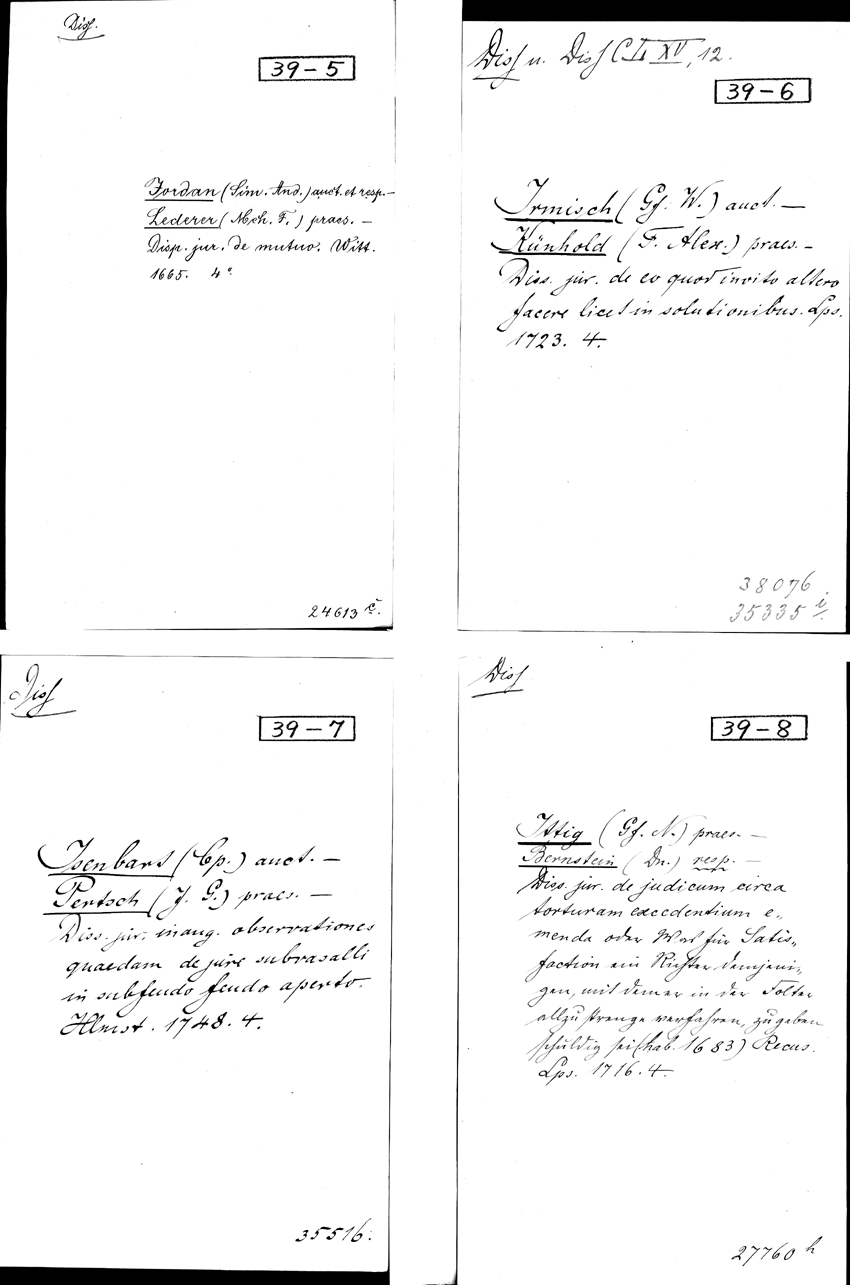 Diss.
39-5
Jordan (Sim. And.) auct. et resp. —
Lederer (Mch. F.) praes. —
Disp. jur. de mutuo. Witt.
1665. 4°.
24613 c.
Diss u. Diss C L XV, 12.
39-6
Irmisch (Gf. W.) auct. —
Künhold (F. Alex.) praes. —
Diss. jur. de eo quod invito altero
facere licet in solutionibus. Lps.
1723. 4.
38076
35335 i.
Diss
39-7
Isenbart (Cp.) auct. —
Pertsch (J. G.) praes. —
Diss. jur. inaug. observationes
quaedam de jure subvasalli
in subfeudo feudo aperto.
Hlmst. 1748. 4.
35516.
Diss
39-8
Ittig (Gf. N.) praes. —
Bernstein (Dn.) resp. —
Diss. jur. de judicum circa
torturam excedentium e„
menda oder Was für Satis„
faction ein Richter demjeni„
gen, mit dem er in der Folter
allzu strenge verfahren, zu geben
schuldig sei (hab. 1683) Recus.
Lps. 1716. 4.
27760 h